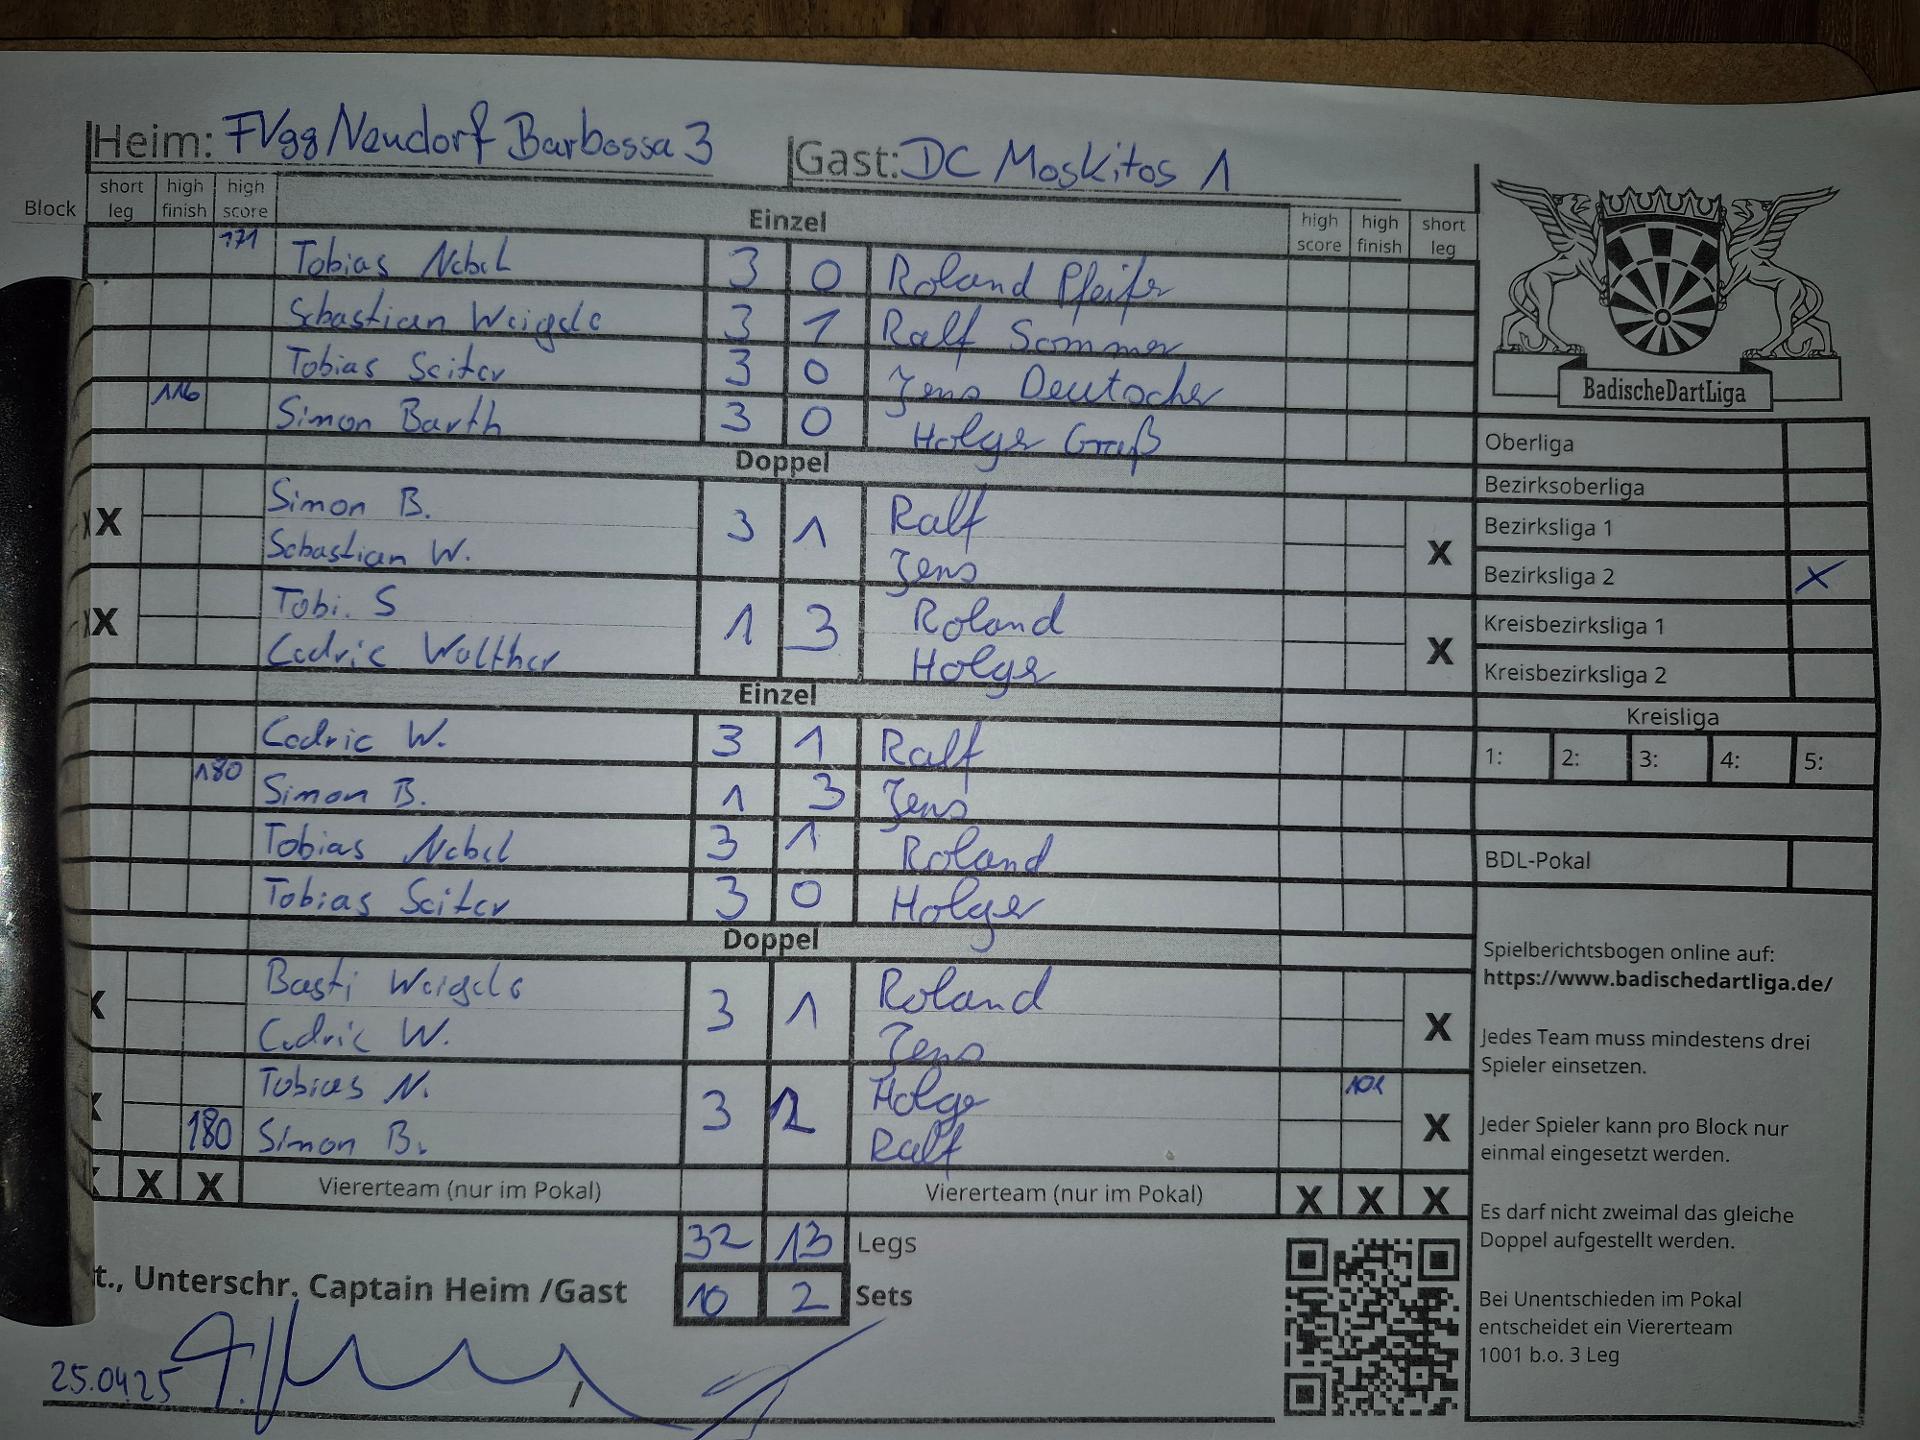 Heim: FVgg Neudorf Barbossa 3 Gast: DC Moskitos 1
Block short leg high finish high score Einzel high score high finish short leg
171 Tobias Nebel 3 0 Roland Pfeifer
Sebastian Weigele 3 1 Ralf Sommer
Tobias Seiter 3 0 Jens Deutscher
116 Simon Barth 3 0 Holger Graß
Doppel
X Simon B. 3 1 Ralf X
Sebastian W. Jens
X Tobi. S 1 3 Roland X
Cedric Walther Holger
Einzel
Cedric W. 3 1 Ralf
180 Simon B. 1 3 Jens
Tobias Nebel 3 1 Roland
Tobias Seiter 3 0 Holger
Doppel
X Basti Weigele 3 1 Roland X
Cedric W. Jens
X Tobias N. 3 2 Holge 101 X
180 Simon B. Ralf
X X X Viererteam (nur im Pokal) Viererteam (nur im Pokal) X X X
32 13 Legs
10 2 Sets
t., Unterschr. Captain Heim /Gast
25.04.25 /
BadischeDartLiga
Oberliga
Bezirksoberliga
Bezirksliga 1
Bezirksliga 2 X
Kreisbezirksliga 1
Kreisbezirksliga 2
Kreisliga
1: 2: 3: 4: 5:
BDL-Pokal
Spielberichtsbogen online auf:
https://www.badischedartliga.de/
Jedes Team muss mindestens drei
Spieler einsetzen.
Jeder Spieler kann pro Block nur
einmal eingesetzt werden.
Es darf nicht zweimal das gleiche
Doppel aufgestellt werden.
Bei Unentschieden im Pokal
entscheidet ein Viererteam
1001 b.o. 3 Leg